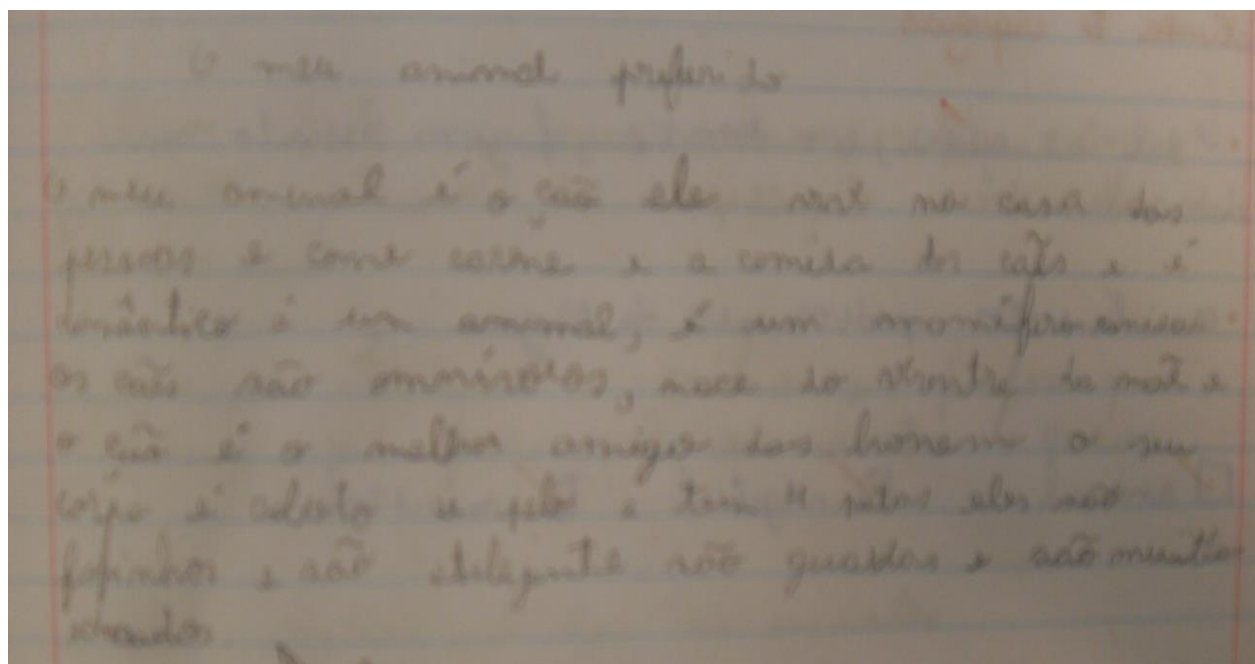 O meu animal preferido
O meu animal é o ção ele vive na casa das
pessoas e come carne e a comida dos cães e é
é um animal, é um
os cães são omnivoros, nasce do ventre da mãe e
o ção é o melhor amigo dos homem o seu
corpo é coberto de pelo e tem 4 patas eles são
fofinhos e são são guardas e são muito